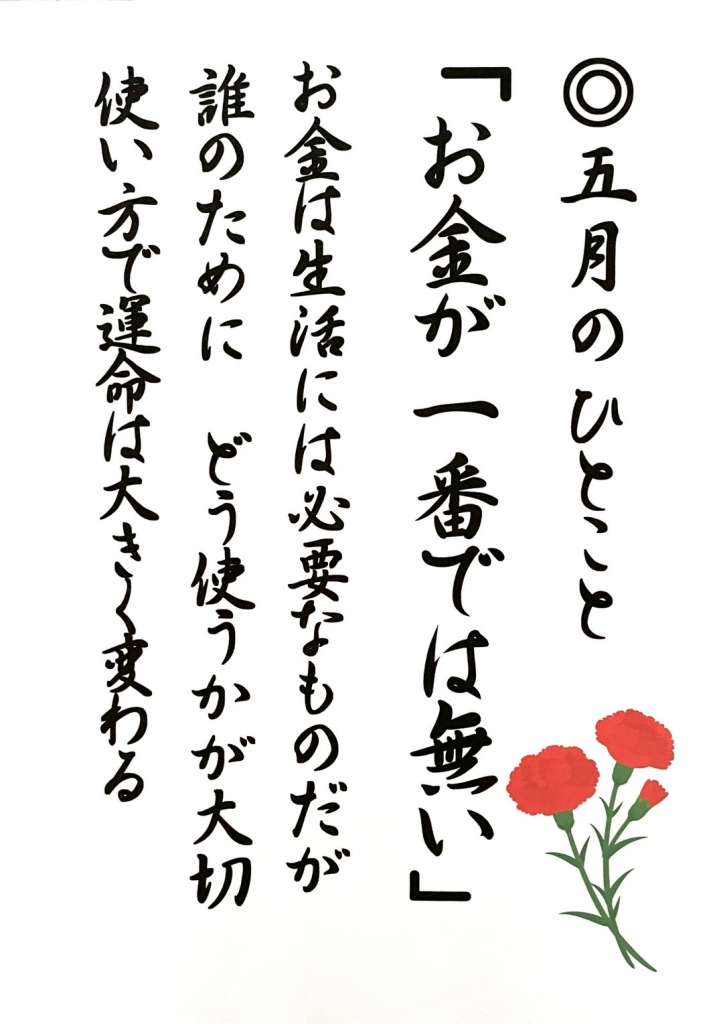 ◎五月のひとこと
「お金が一番では無い」
お金は生活には必要なものだが
誰のために　どう使うかが大切
使い方で運命は大きく変わる